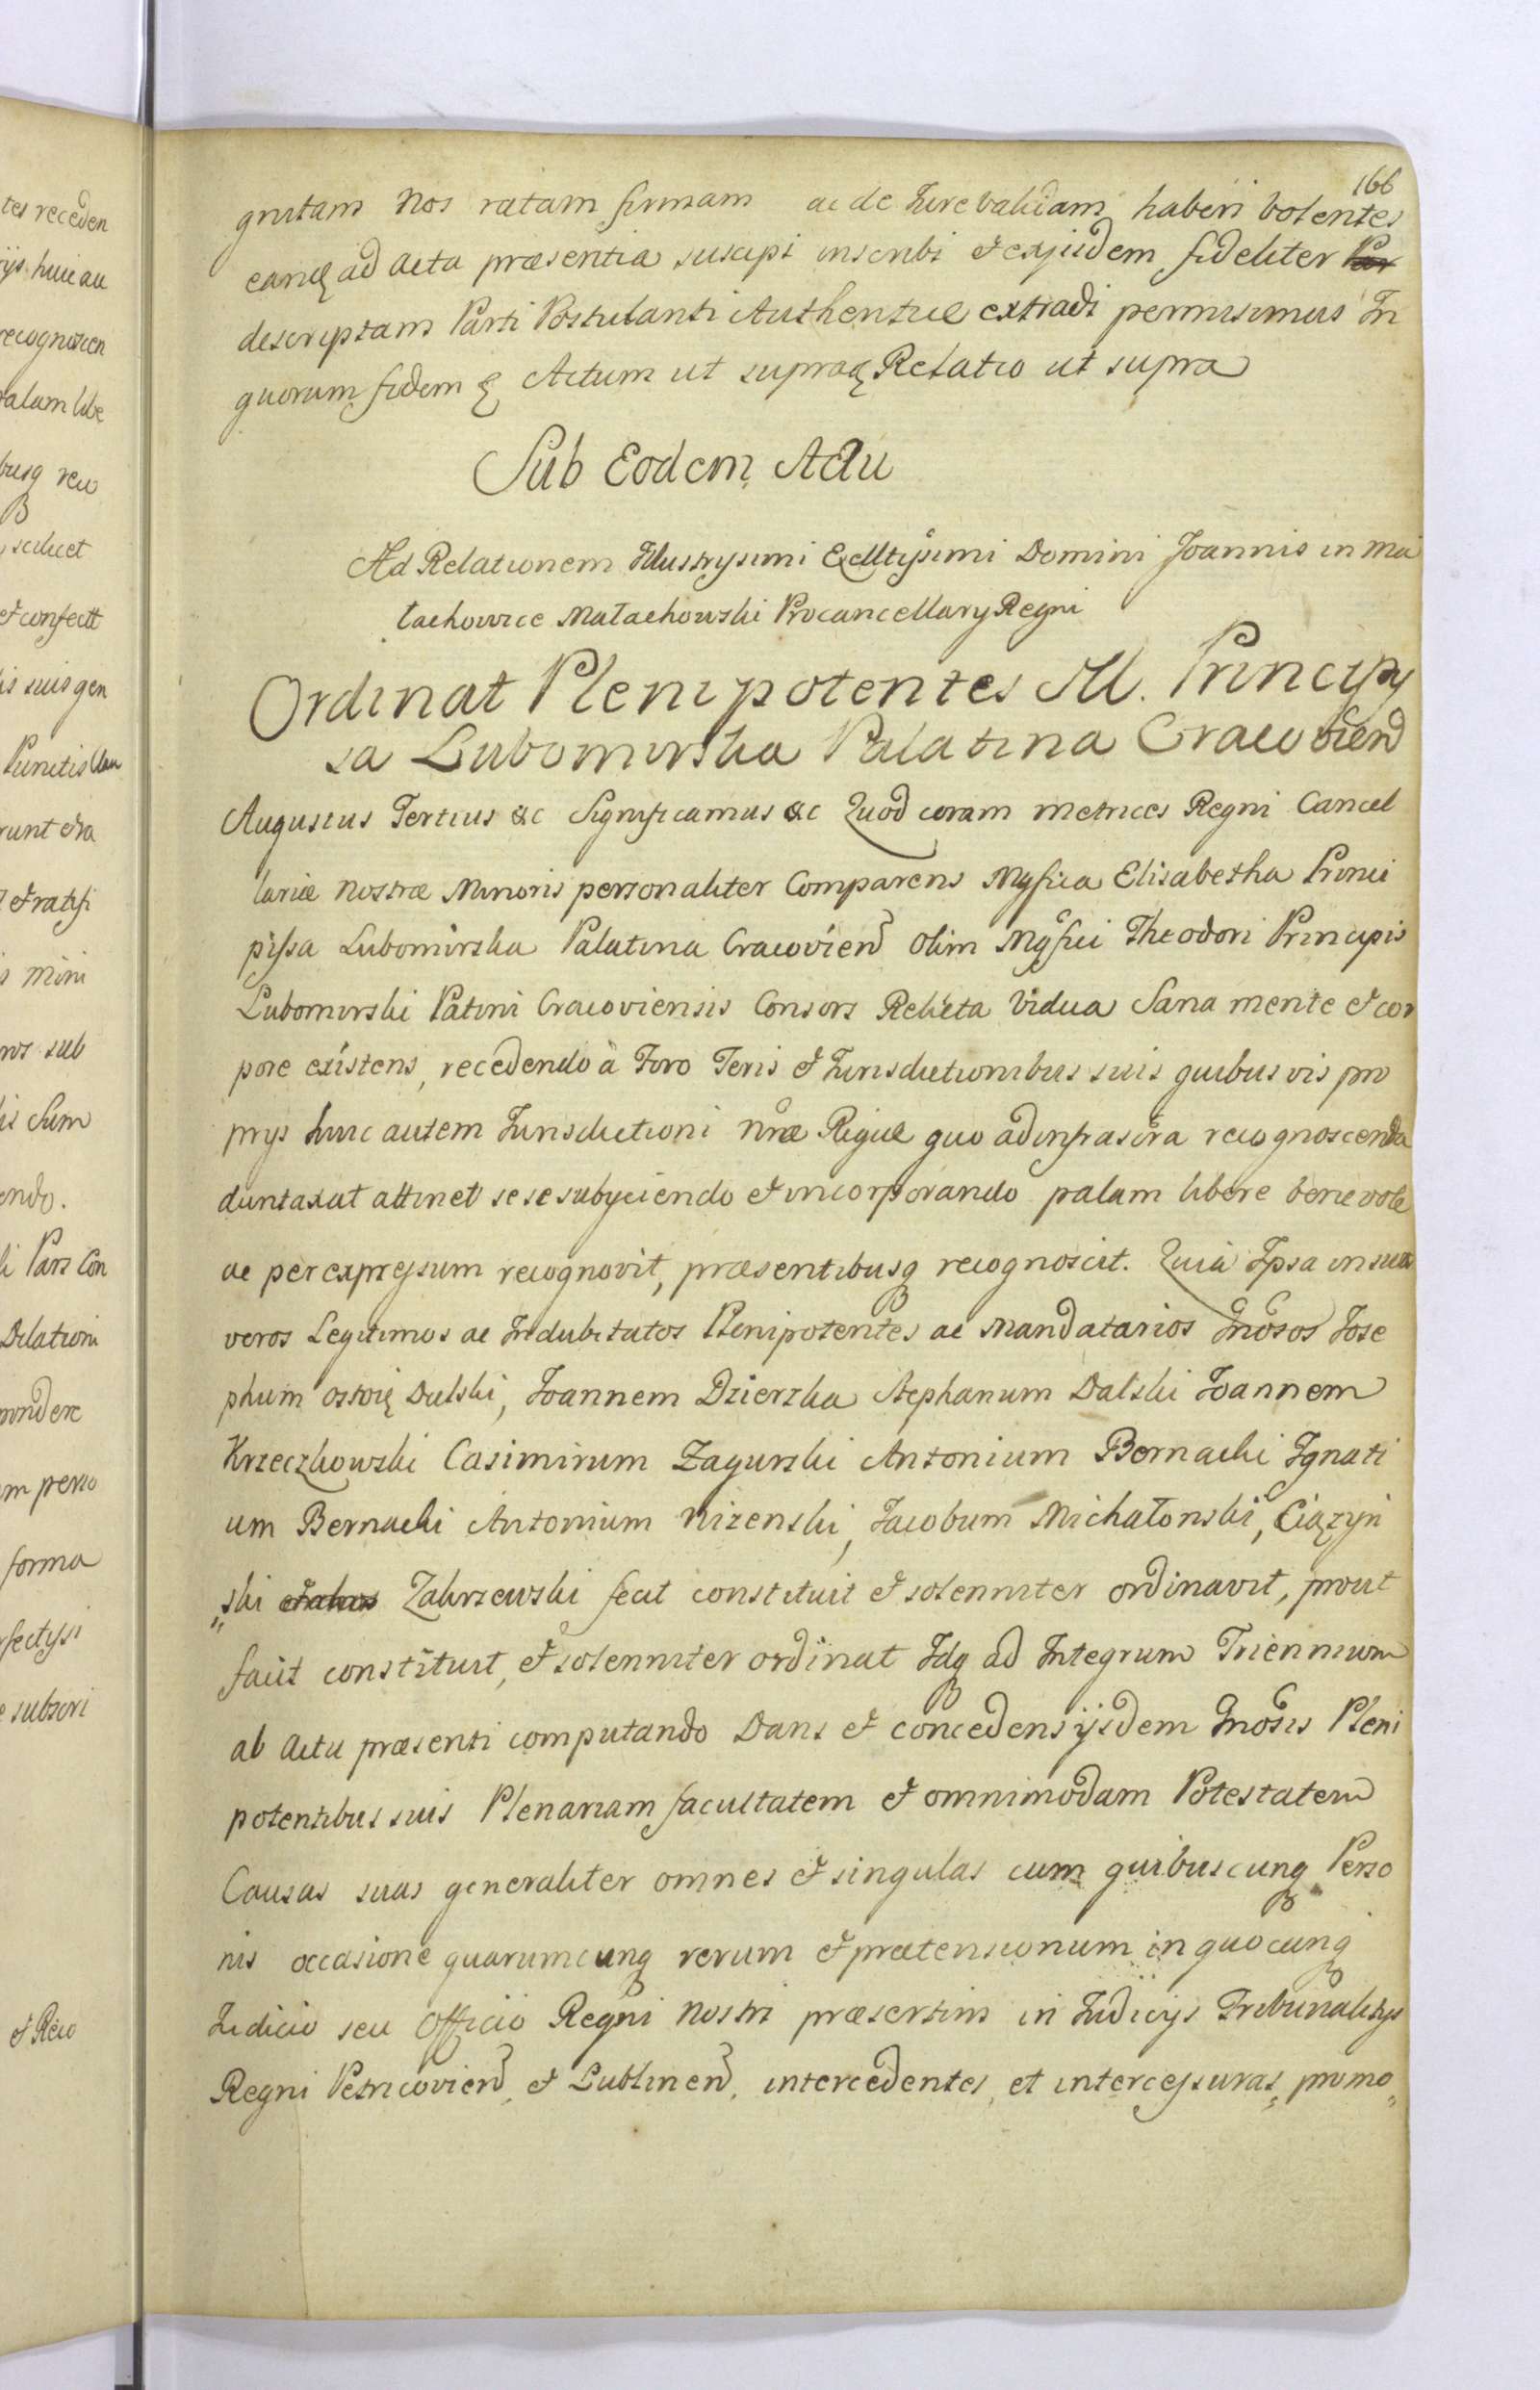 166
gnitam Nos ratam firmam ac de Jure validam haberi volentes
eamq ad Acta præsentia suscipi inscribi et exijsdem fideliter
descriptam Parti Postulanti Authentice extradi permisimus In
quorum fidem Actum ut supra Relatio ut supra
Sub Eodem Actu
Ad Relationem Illustrysimi Excelltysimi Domini Joannis in Ma
łachowice Małachowski Procancellary Regni
Ordinat Plenipotentes M. Princypy
sa Lubomirska Palatina Cracovien
Augustus Tertius &c Significamus &c Quod coram metrices Regni Cancel
lariæ Nostræ Minoris personaliter Comparens Mgfica Elisabetha Princi
pissa Lubomirska Palatina Cracovien olim Mgfici Theodori Principis
Lubomirski Patini Cracoviensis Consors Relicta Vidua Sana mente et cor
pore existens, recedendo à Foro Teris et Jurisdictionibus suis quibus vis pro
prys huic autem Jurisdictioni nræ Regiæ quo ad infrascra recognoscenda
duntaxat attinet sese subyciendo et incorporando palam libere benevole
ac per expressum recognovit, præsentibusq recognoscit. Quia Ipsa in suos
veros Legitimos ac Indubitatos Plenipotentes ac Mandatarios Gnosos Jose
phum Ossoię Dulski, Joannem Dzierzka Stephanum Dalski Joannem
Krzeczkowski Casimirum Zagurski Antonium Bernacki Ignati
um Bernacki Antonium Nizenski, Jacobum Michałonski, Ciązyn
ski Zakrzewski fecit constituit et solenniter ordinavit, prout
facit constituit, et solenniter ordinat Idq ad Integrum Triennium
ab Actu præsenti computando Dans et concedens ijsdem Gnosis Pleni
potentibus suis Plenariam facultatem et omnimodam Potestatem
Causas suas generaliter omnes et singulas cum quibuscunq Perso
nis occasione quarumcunq rerum et prætensionum in quocunq
Judicio seu Officio Regni Nostri præsertim in Judicijs Tribunalitijs
Regni Petricovien, et Lublinen, intercedentes, et intercessuras, promo